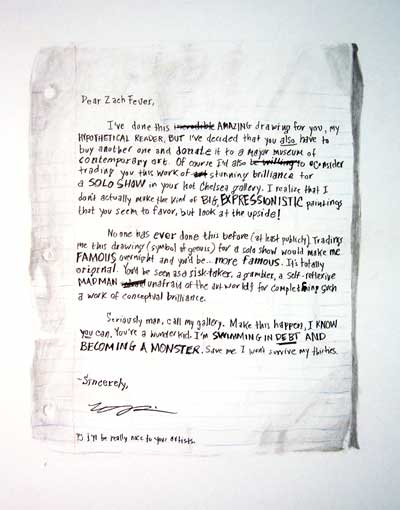 Dear Zach Feuer,
I've done this incredible AMAZING drawing for you, my
HYPOTHETICAL READER, BUT I've decided that you also have to
buy another one and donate it to a major museum of
contemporary art. Of course I'd also be willing to consider
trading you this work of art stunning brilliance for
a SOLO SHOW in your hot Chelsea gallery. I realize that I
don't actually make the kind of BIG, EXPRESSIONISTIC paintings
that you seem to favor, but look at the upside!
No one has ever done this before (at least publicly). Trading
me this drawing (symbol of genius) for a solo show would make me
FAMOUS overnight and you'd be... more famous. It's totally
original. You'd be seen as a risk-taker, a gambler, a self-reflexive
MADMAN unafraid of the art world for completing such
a work of conceptual brilliance.
Seriously man, call my gallery. Make this happen, I KNOW
you can. You're a wunderkid. I'm SWIMMING IN DEBT AND
BECOMING A MONSTER. Save me. I won't survive my thirties.
-Sincerely,
PS I'll be really nice to your artists.